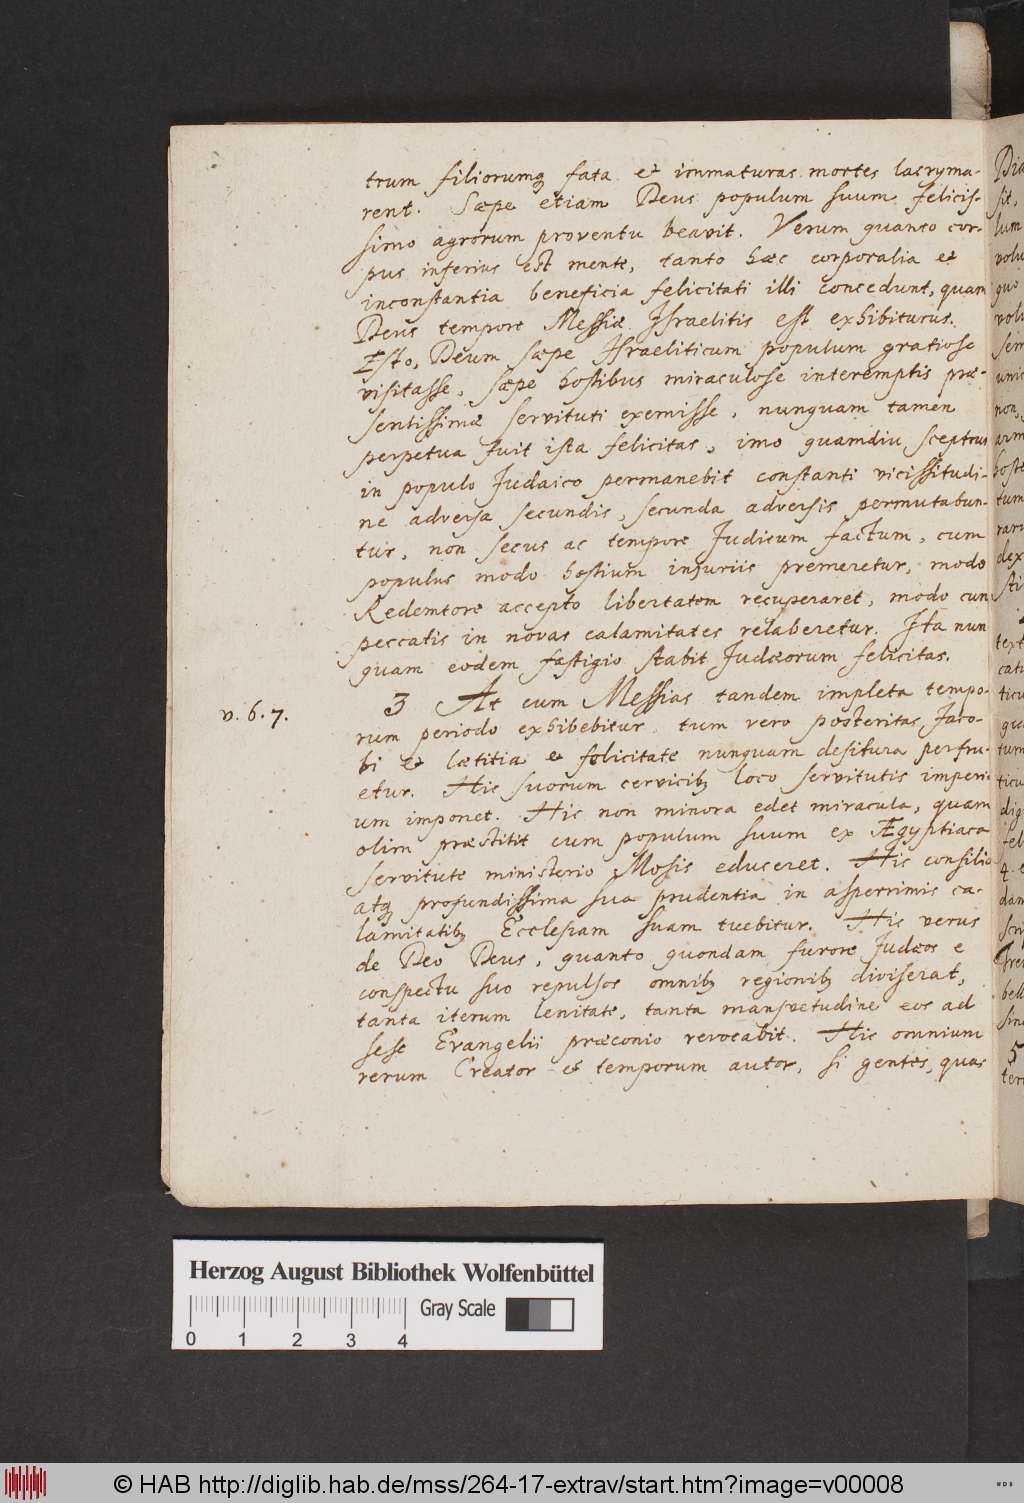 trum filiorumq fata et immaturas mortes lacryma-
rent. Sæpe etiam Deus populum suum felicis-
simo agrorum proventu beavit. Verum quanto cor-
pus inferius est mente, tanto hæc corporalia et
inconstantia beneficia felicitati illi concedunt, quam
Deus tempore Messiæ Israelitis est exhibiturus.
Esto, Deum sæpe Israeliticum populum gratiose
visitasse, sæpe hostibus miraculose interemptis præ-
sentissimæ servituti exemisse, nunquam tamen
perpetua fuit ista felicitas, imo quamdiu sceptrum
in populo Judaico permanebit constanti vicissitudi-
ne adversa secundis, secunda adversis permutabun-
tur, non secus ac tempore Judicum factum, cum
populus modo hostium injuriis premeretur, modo
Redemtore accepto libertatem recuperaret, modo cum
peccatis in novas calamitates relaberetur. Ita nun
quam eodem fastigio stabit Judæorum felicitas.
v. 6. 7.
3 At cum Messias tandem impleta tempo-
rum periodo exhibebitur, tum vero posteritas Jaco-
bi et lætitia et felicitate nunquam desitura perfru-
etur. Hic suorum cervicib loco servitutis imperi-
um imponet. Hic non minora edet miracula, quam
olim præstitit cum populum suum ex Ægyptiaca
servitute ministerio Mosis educeret. Hic consilio
atq profundissima sua prudentia in asperrimis ca-
lamitatib Ecclesiam suam tuebitur. Hic verus
de Deo Deus, quanto quondam furore Judæos e
conspectu suo repulsos omnib regionib diviserat,
tanta iterum lenitate, tanta mansvetudine eos ad
sese Evangelii præconio revocabit. Hic omnium
rerum Creator et temporum autor, si gentes, quas
Herzog August Bibliothek Wolfenbüttel
Gray Scale
0 1 2 3 4
© HAB http://diglib.hab.de/mss/264-17-extrav/start.htm?image=v00008